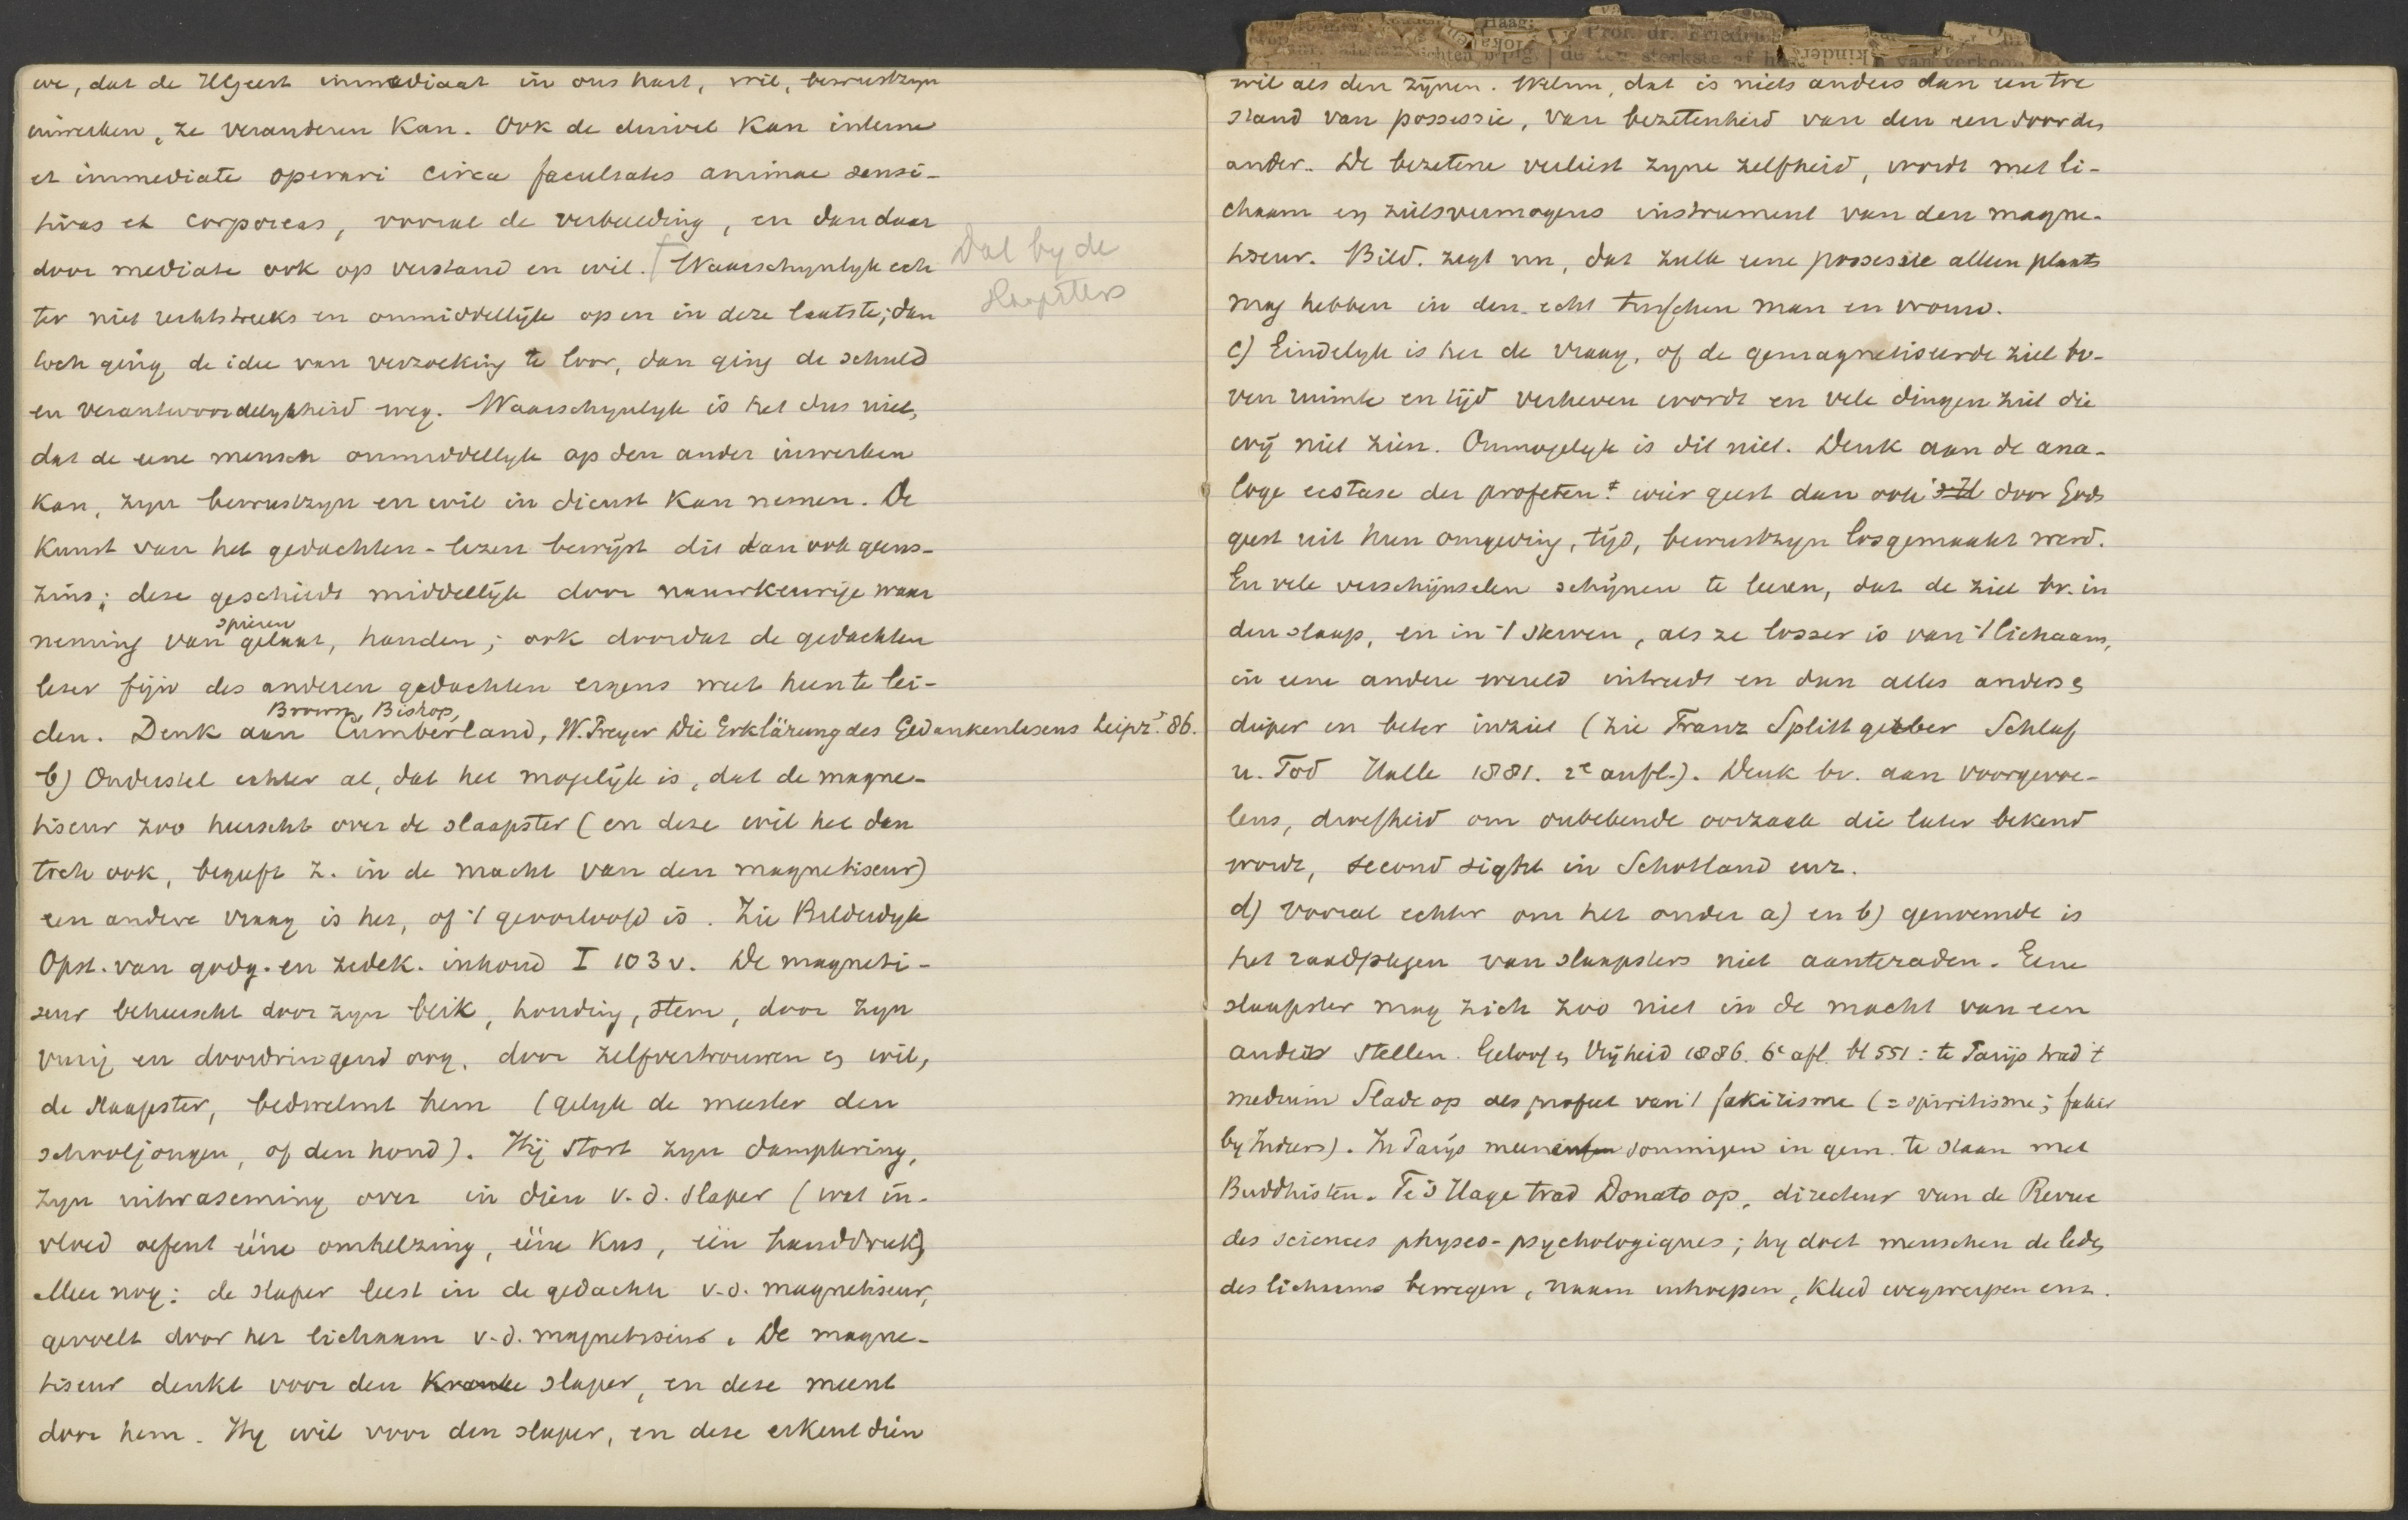 we, dat de HGeest immediaat in ons hart, wil, bewustzyn
inwerken, ze veranderen kan. Ook de duivel kan interne
et immediate operari circa facultates animae sensi-
tivas et corporeas, vooral de verbeelding, en dan daar
door mediate ook op verstand en wil. Waarschynlyk ech
ter niet rechtstreeks en onmiddellijk op en in deze laatste; dan
toch ging de idee van verzoeking te loor, dan ging de schuld
en verantwoordelykheid weg. Waarschynlyk is het dus niet,
dat de eene mensch onmiddellyk op den ander inwerken
kan, zyn bewustzyn en wil in dienst kan nemen. De
kunst van het gedachten-lezen bewijst dit dan ook geens-
zins; deze geschiedt middellijk door nauwkeurige waar
neming van spieren gelaat, handen; ook doordat de gedachten
lezer fijn des anderen gedachten ergens weet heen te lei-
den. Denk aan Brown, Bishop, Cumberland, W. Preyer Die Erklärung des Gedankenlesens Leipz. 86.
b) Ondersteld echter al, dat het mogelijk is, dat de magne-
tiseur zoo heerscht over de slaapster (en deze wil het dan
toch ook, begeeft z. in de macht van den magnetiseur)
een andere vraag is het, of 't geoorloofd is. Zie Bilderdyk
Opst. van godg. en zedek. inhoud I 103 v. De magneti-
seur beheerscht door zyn blik, houding, stem, door zyn
vurig en doordringend oog, door zelfvertrouwen en wil,
de slaapster, bedwelmt hem (gelyk de meester den
schooljongen, of den hond). Hij stort zyn dampkring,
zyn uitwaseming over in dien v.d. slaper (wat in-
vloed oefent ééne omhelzing, ééne kus, één handdruk)
Meer nog: de slaper leest in de gedachte v.d. magnetiseur,
gevoelt door het lichaam v.d. magnetiseur. De magne-
tiseur denkt voor den kranke slaper, en deze meent
door hem. Hy wil voor den slaper, en deze erkent dien
Dat by de
slaapsters
wil als den zijnen. Welnu, dat is niets anders dan een toe
stand van possessie, van bezetenheid van den een door den
ander. De bezetene verliest zyne zelfheid, wordt met li-
chaam en zielsvermogens instrument van den magne-
tiseur. Bild. zegt nu, dat zulk eene possessie alleen plaats
mag hebben in den echt tusschen man en vrouw.
c) Eindelyk is het de vraag, of de gemagnetiseerde ziel bo-
ven ruimte en tijd verheven wordt en vele dingen ziet die
wij niet zien. Onmogelyk is dit niet. Denk aan de ana-
loge ecstase der profeten, wier geest dan ook door Gods
geest uit hun omgeving, tijd, bewustzyn losgemaakt werd.
En vele verschijnselen schijnen te leeren, dat de ziel bv. in
den slaap, en in 't sterven, als ze losser is van 't lichaam,
in eene andere wereld intreedt en dan alles anders en
dieper en beter inziet (zie Franz Splittgerber Schlaf
u. Tod Halle 1881. 2e aufl.). Denk bv. aan voorgevoe-
lens, droefheid om onbekende oorzaak die later bekend
wordt, second sight in Schotland enz.
d) Vooral echter om het onder a) en b) genoemde is
het raadplegen van slaapsters niet aanteraden. Eene
slaapster mag zich zoo niet in de macht van een
ander stellen. Geloof en Vrijheid 1886. 6e afl. bl 551: te Parijs trad 't
medium Slade op als profeet van 't fakirisme (= spiritisme; fakir
by Indiers). In Parijs meenen sommigen in gem. te staan met
Buddhisten. Te 's Hage trad Donato op, directeur van de Revue
des sciences physco-psychologiques; hy doet menschen de leden
des lichaams bewegen, naam uitroepen, kleed wegwerpen enz.